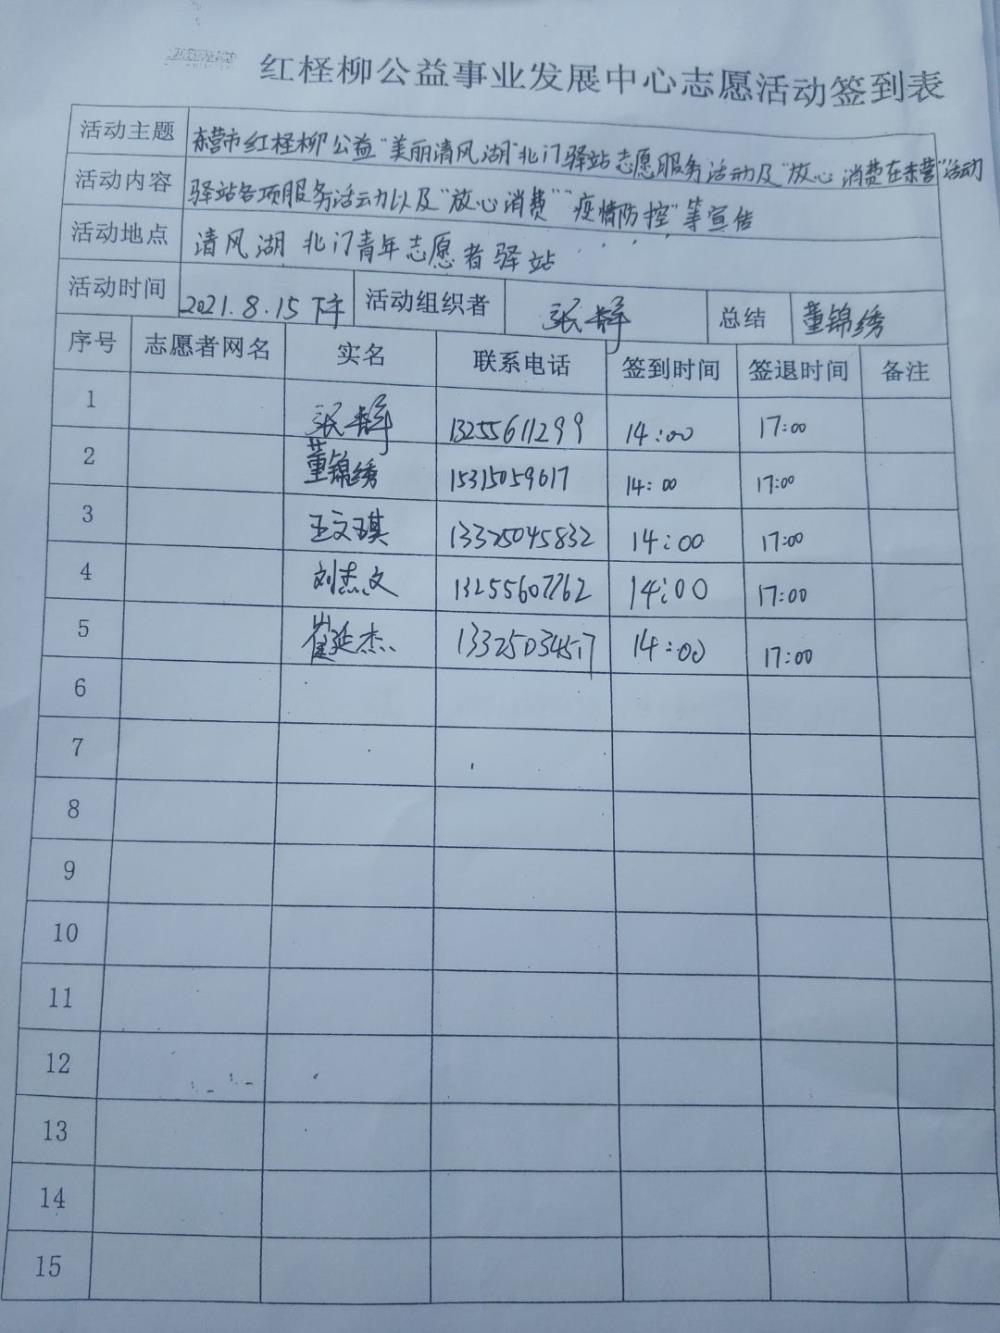 红柽柳公益事业发展中心志愿活动签到表
活动主题 东营市红柽柳公益"美丽清风湖"北门驿站志愿服务活动及"放心消费在东营"活动
活动内容 驿站各项服务活动以及"放心消费""疫情防控"等宣传
活动地点 清风湖北门青年志愿者驿站
活动时间 2021.8.15下午 活动组织者 张 总结 董锦绣
序号 志愿者网名 实名 联系电话 签到时间 签退时间 备注
1 张 13255611299 14:00 17:00
2 董锦绣 15315059617 14:00 17:00
3 王文琪 13325045832 14:00 17:00
4 刘志文 13255607762 14:00 17:00
5 崔延杰 13325034517 14:00 17:00
6
7
8
9
10
11
12
13
14
15